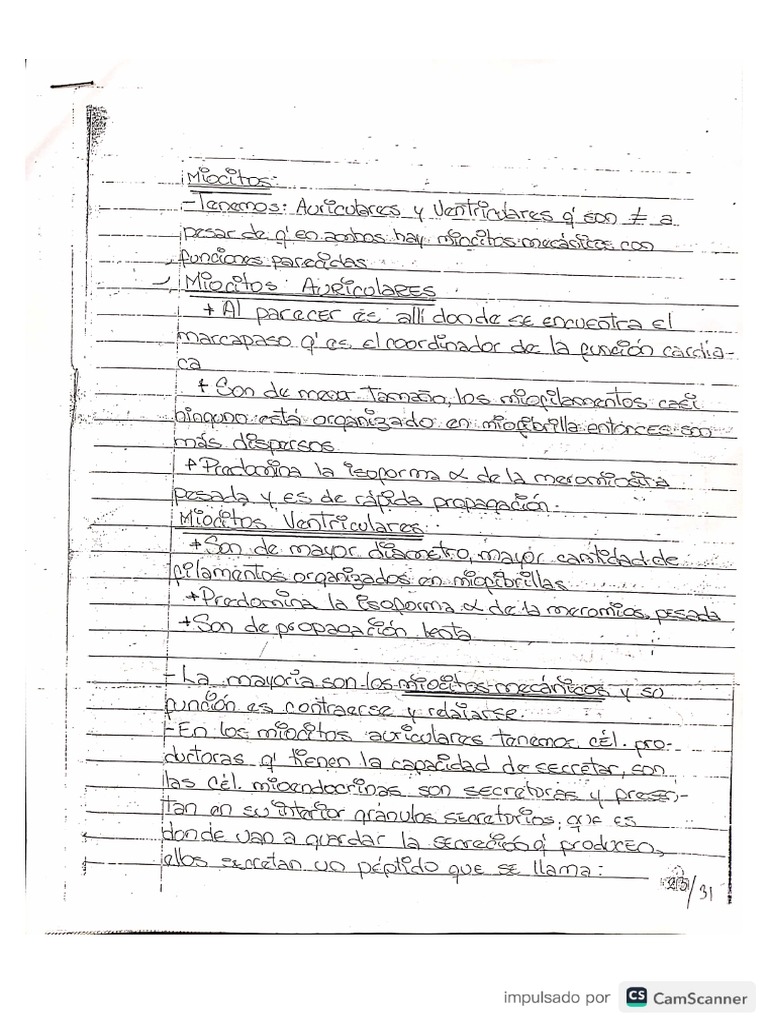 Miocitos:
-Tenemos: Auriculares y Ventriculares q' son ≠ a
pesar de q' en ambos hay miocitos mecánicos con
funciones parecidas
Miocitos Auriculares
+ Al parecer es allí donde se encuentra el
marcapaso q' es el coordinador de la función cardia-
ca
+ Son de menor tamaño, los miofilamentos casi
ninguno está organizado en miofibrilla entonces son
más dispersos
+ Predomina la isoforma α de la meromiosina
pesada y es de rápida propagación.
Miocitos Ventriculares
+ Son de mayor diámetro, mayor cantidad de
filamentos organizados en miofibrillas
+ Predomina la isoforma α de la meromios. pesada
+ Son de propagación lenta
- La mayoria son los miocitos mecánicos y su
función es contraerse y relajarse.
- En los miocitos auriculares tenemos cél. pro-
ductoras q' tienen la capacidad de secretar, son
las cél. mioendocrinas son secretoras y presen-
tan en su interior gránulos secretorios, que es
donde van a guardar la secreción q' producen,
ellos secretan un péptido que se llama:
/31
impulsado por CS CamScanner